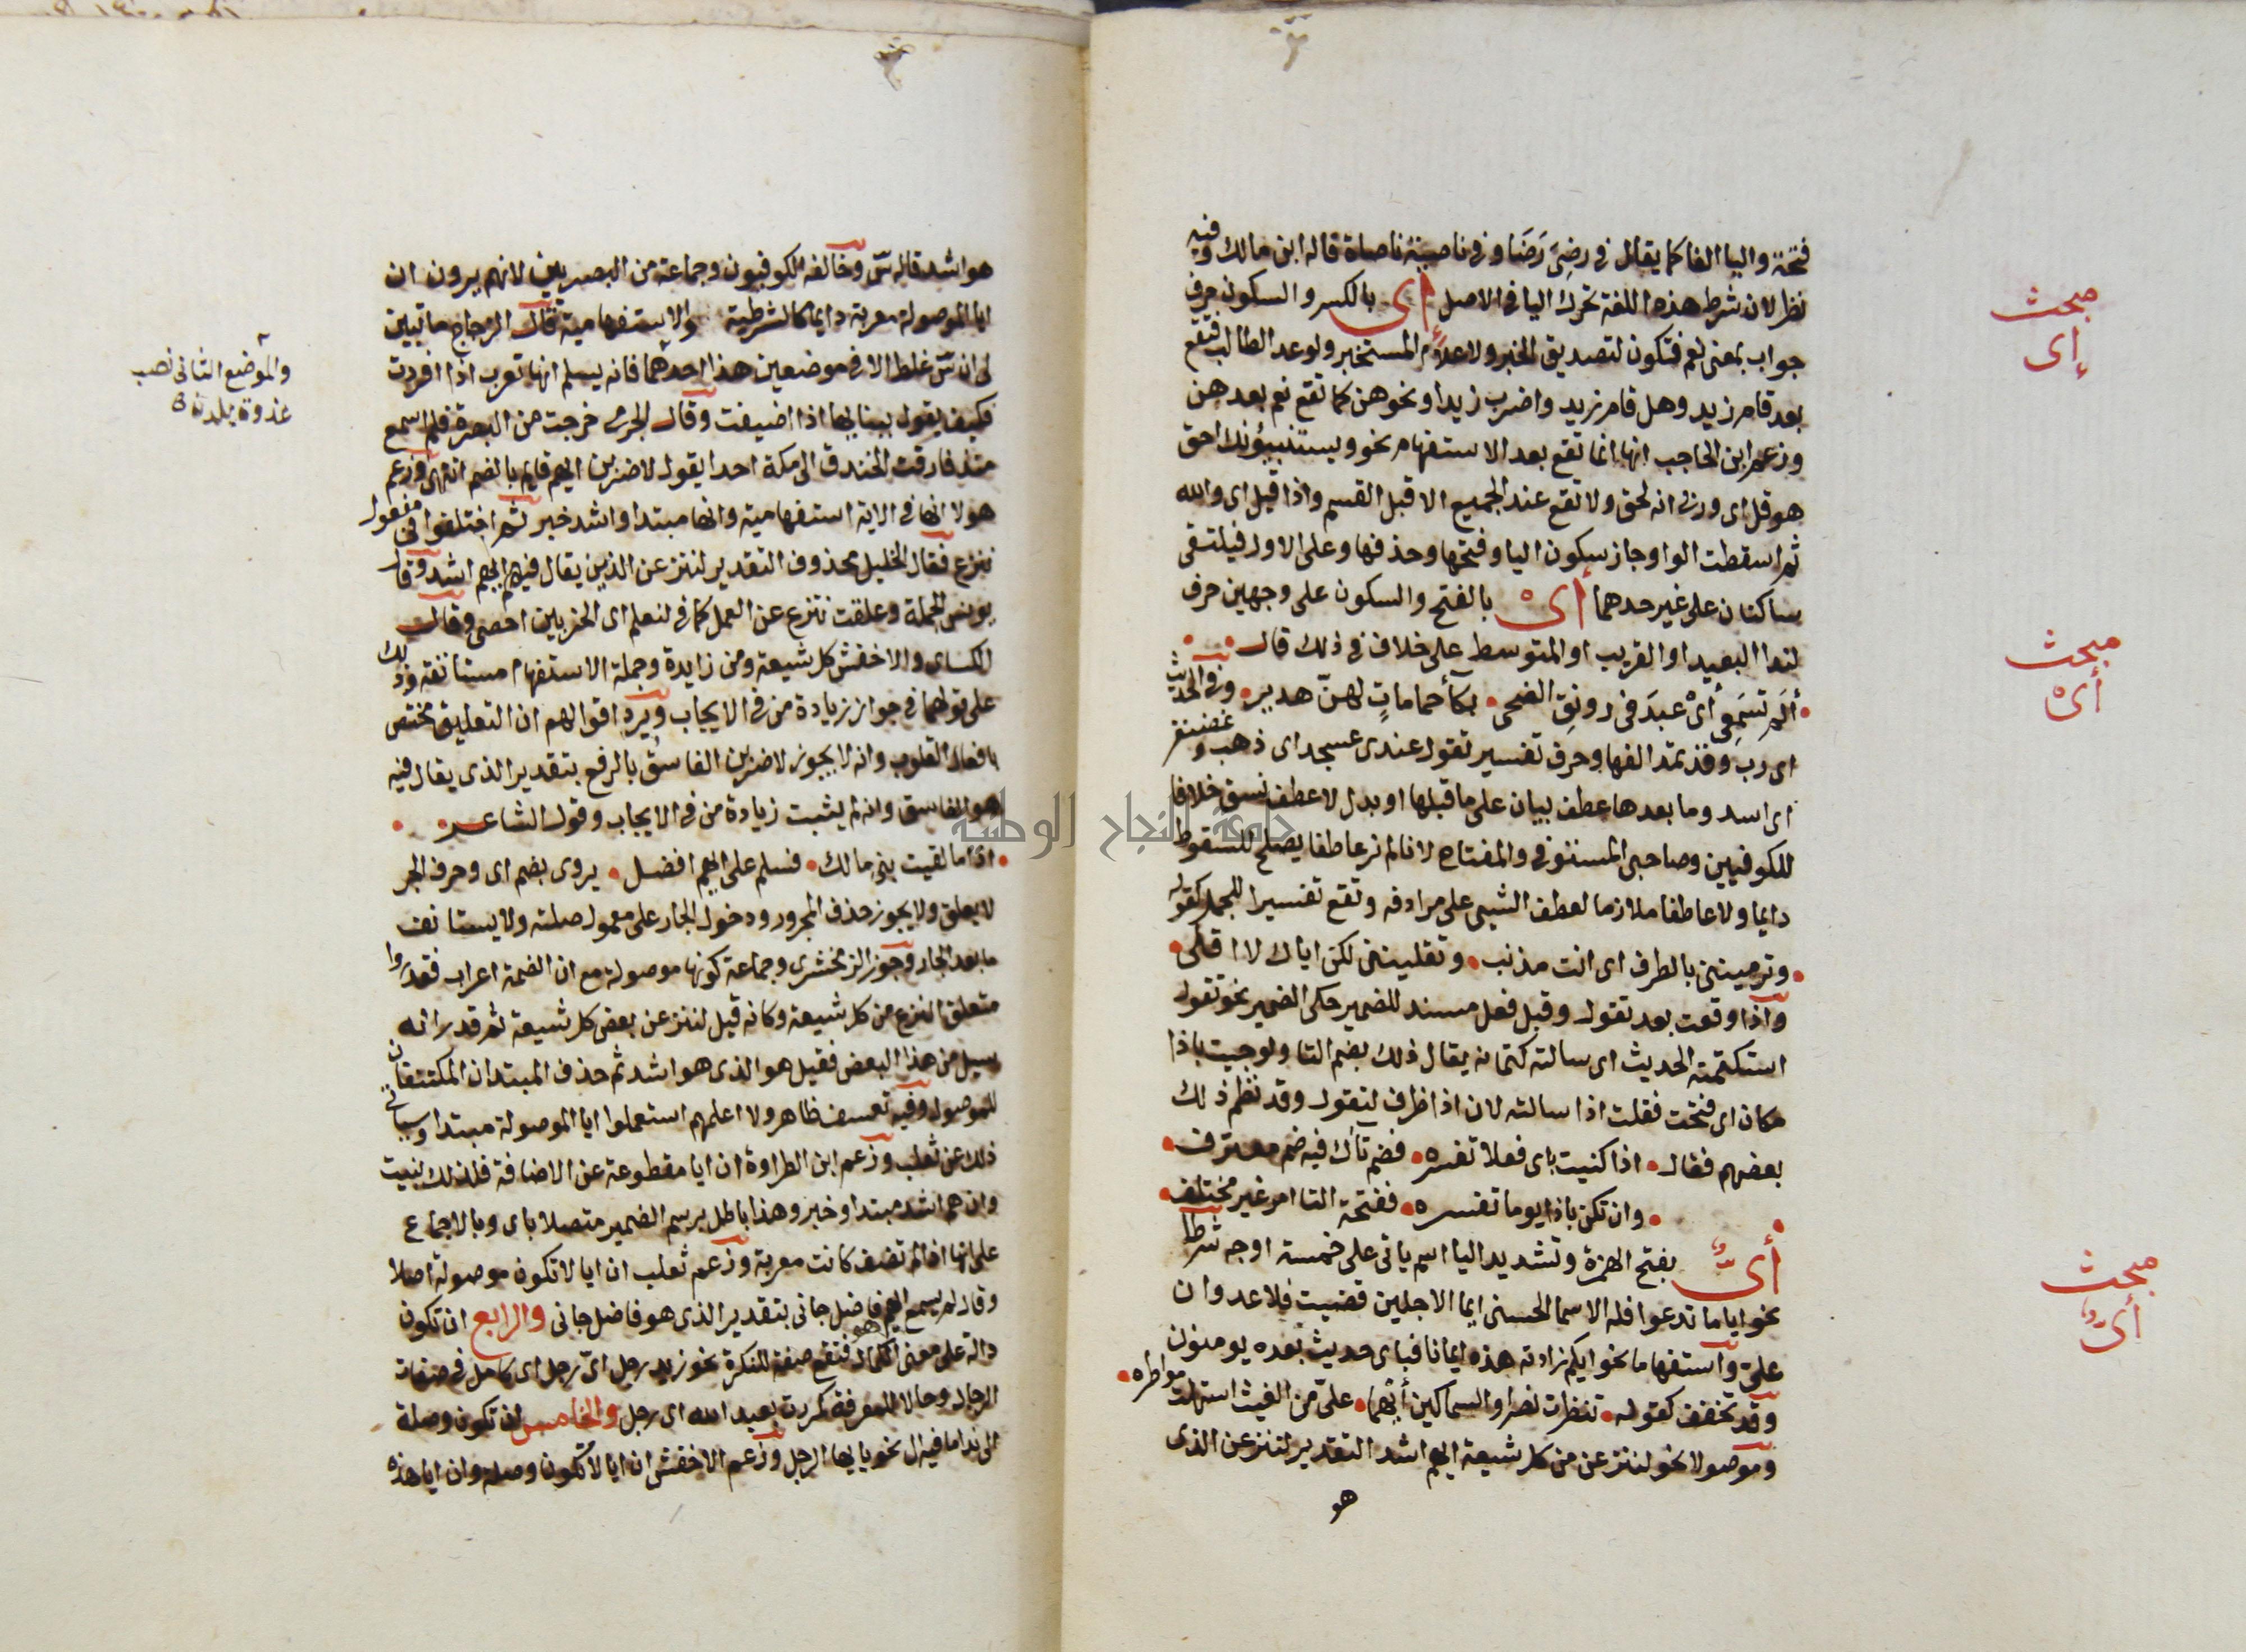 فتحة واليا الفا كما يقال في رضِيَ رَضَا وفي ناصية ناصاة قاله ابن مالك وفيه
نظر لان شرط هذه اللغة تحرك اليا في الاصل إى بالكسر والسكون حرف
جواب بمعنى نعم فتكون لتصديق المخبر ولاعلام المستخبر ولوعد الطالب فتقع
بعد قام زيد وهل قام زيد واضرب زيدا ونحوهن كما تقع نعم بعدهن
وزعم ابن الحاجب انها انما تقع بعد الاستفهام نحو ويستنبئونك احق
هو قل اى وربى انه لحق ولا تقع عند الجميع الا قبل القسم واذا قيل اى والله
ثم اسقطت الواو جاز سكون اليا وفتحها وحذفها وعلى الاول فيلتقى
ساكنان على غير حدهما أىْ بالفتح والسكون على وجهين حرف
لندا البعيد او القريب او المتوسط على خلاف في ذلك قال
ألم تسمَعِى أىْ عبدَ فى رونق الضحى بكآ حماماتٍ لهنّ هدير وفى الحديث
اى رب وقد تمد الفها وحرف تفسير تقول عندى عسجد اى ذهب وغضنفر
اى اسد وما بعدها عطف بيان على ما قبلها او بدل لا عطف نسق خلافا
للكوفيين وصاحبى المستوفى والمفتاح لانا لم نر عاطفا يصلح للسقوط
دايما ولا عاطفا ملازما لعطف الشيى على مرادفه وتقع تفسيرا للجمل كقوله
وترمينني بالطرف اى انت مذنب وتقلينني لكن اياك لا اقلى
واذا وقعت بعد تقول وقبل فعل مسند للضمير حكى الضمير نحو تقول
استكتمته الحديث اى سالته كتمانه يقال ذلك بضم التا ولو جيت باذا
مكان اى فتحت فقلت اذا سالته لان اذا ظرف لتقول وقد نظم ذلك
بعضهم فقال اذا كنيت باى فعلا تفسره فضم تاك فيه ضم معترف
وان تكن باذا يوما تفسره ففتحة التا امر غير مختلف
أىّ بفتح الهمزة وتشديد اليا اسم ياتى على خمسة اوجه شرطا
نحو اياما تدعوا فله الاسما الحسنى ايما الاجلين قضيت فلا عدوان
علىّ واستفهاما نحو ايكم زادته هذه ايمانا فباى حديث بعده يومنون
وقد تخفف كقوله تنظرت نصرا والسماكين أيهما علىّ من الغيث استهلت مواطره
وموصولا نحو لننزعن من كل شيعة ايهم اشد التقدير لننزعن الذى
هو
مبحث
إى
مبحث
أىْ
مبحث
أىّ
هو اشد قاله س وخالفه الكوفيون وجماعة من البصريين لانهم يرون ان
ايا الموصولة معربة دايما كالشرطية والاستفهامية قال الزجاج ما تبين
لى ان س غلط الا في موضعين هذا احدهما فانه يسلم انها تعرب اذا افردت
فكيف يقول ببنايها اذا اضيفت وقال الجرمى خرجت من البصرة فلم اسمع
منذ فارقت الخندق الى مكة احدا يقول لاضربن ايهم قايم بالضم انتهى وزعم
هولا انها في الاية استفهامية وانها مبتدا واشد خبر ثم اختلفوا في مفعول
ننزع فقال الخليل محذوف التقدير لننزعن الذين يقال فيهم ايهم اشد وقال
يونس الجملة وعلقت ننزع عن العمل كما في لنعلم اى الحزبين احصى وقال
الكساى والاخفش كل شيعة ومن زايدة وجملة الاستفهام مستانفة وذلك
على قولهما في جواز زيادة من في الايجاب ويرد اقوالهم ان التعليق مختص
بافعال القلوب وانه لا يجوز لاضربن الفاسقُ بالرفع بتقدير الذى يقال فيه
هو الفاسق وانه لم يثبت زيادة من في الايجاب وقول الشاعر
اذا ما لقيت بنى مالك فسلم على ايهم افضل يروى بضم اى وحرف الجر
لا يعلق ولا يجوز حذف المجرور ودخول الجار على معمول صلته ولا يستانف
ما بعد الجار وجوز الزمخشرى وجماعة كونها موصولة مع ان الضمة اعراب فقدروا
متعلق النزع من كل شيعة وكانه قيل لننزعن بعض كل شيعة ثم قدر انه
سيل من هذا البعض فقيل هو الذى هو اشد ثم حذف المبتدان المكتنفان
للموصول وفيه تعسف ظاهر ولا اعلمهم استعملوا ايا الموصولة مبتدا وسياتى
ذلك عن ثعلب وزعم ابن الطراوة ان ايا مقطوعة عن الاضافة فلذلك بنيت
وان هم اشد مبتدا وخبر وهذا باطل برسم الضمير متصلا باى وبالاجماع
على انها اذا لم تضف كانت معربة وزعم ثعلب ان ايا لا تكون موصولة اصلا
وقال لم يسمع ايهم هو فاضل جانى بتقدير الذى هو فاضل جانى والرابع ان تكون
دالة على معنى الكمال فتقع صفة للنكرة نحو زيد رجل اىّ رجل اى كامل في صفات
الرجال وحالا للمعرفة كمررت بعبد الله اى رجل والخامس ان تكون وصلة
الى ندا ما فيه ال نحو يا ايها الرجل وزعم الاخفش ان ايا لا تكون وصلة وان ايا هذه
والموضع الثانى نصب
غدوة بلدن
جامعة النجاح الوطنية